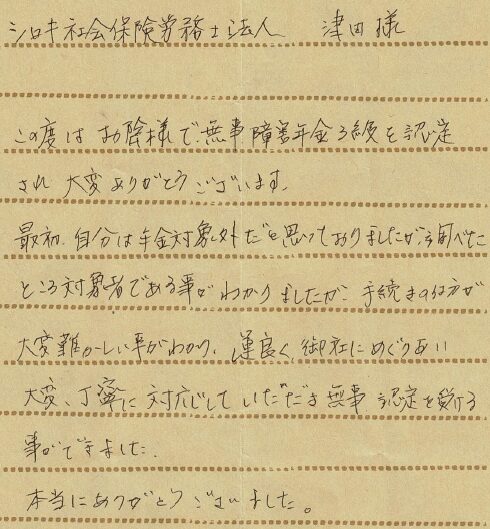 シロキ社会保険労務士法人 津田様
この度はお陰様で無事障害年金3級と認定
され大変ありがとうございます。
最初、自分は年金対象外だと思っておりましたが調べた
ところ対象者である事がわかりましたが、手続きの仕方が
大変難かしい事がわかり、運良く御社にめぐりあい
大変、丁寧に対応していただき無事認定を受ける
事ができました。
本当にありがとうございました。